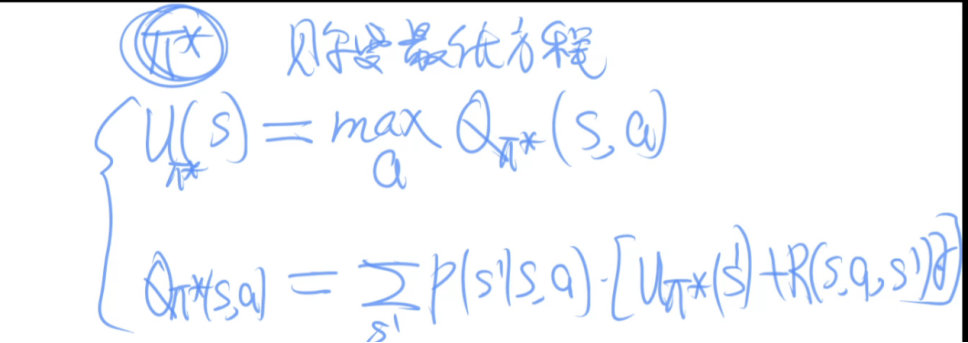 π* 贝尔曼最优方程
U_π*(s) = max_a Q_π*(s,a)
Q_π*(s,a) = Σ_s' P(s'|s,a)·[U_π*(s')+R(s,a,s')]